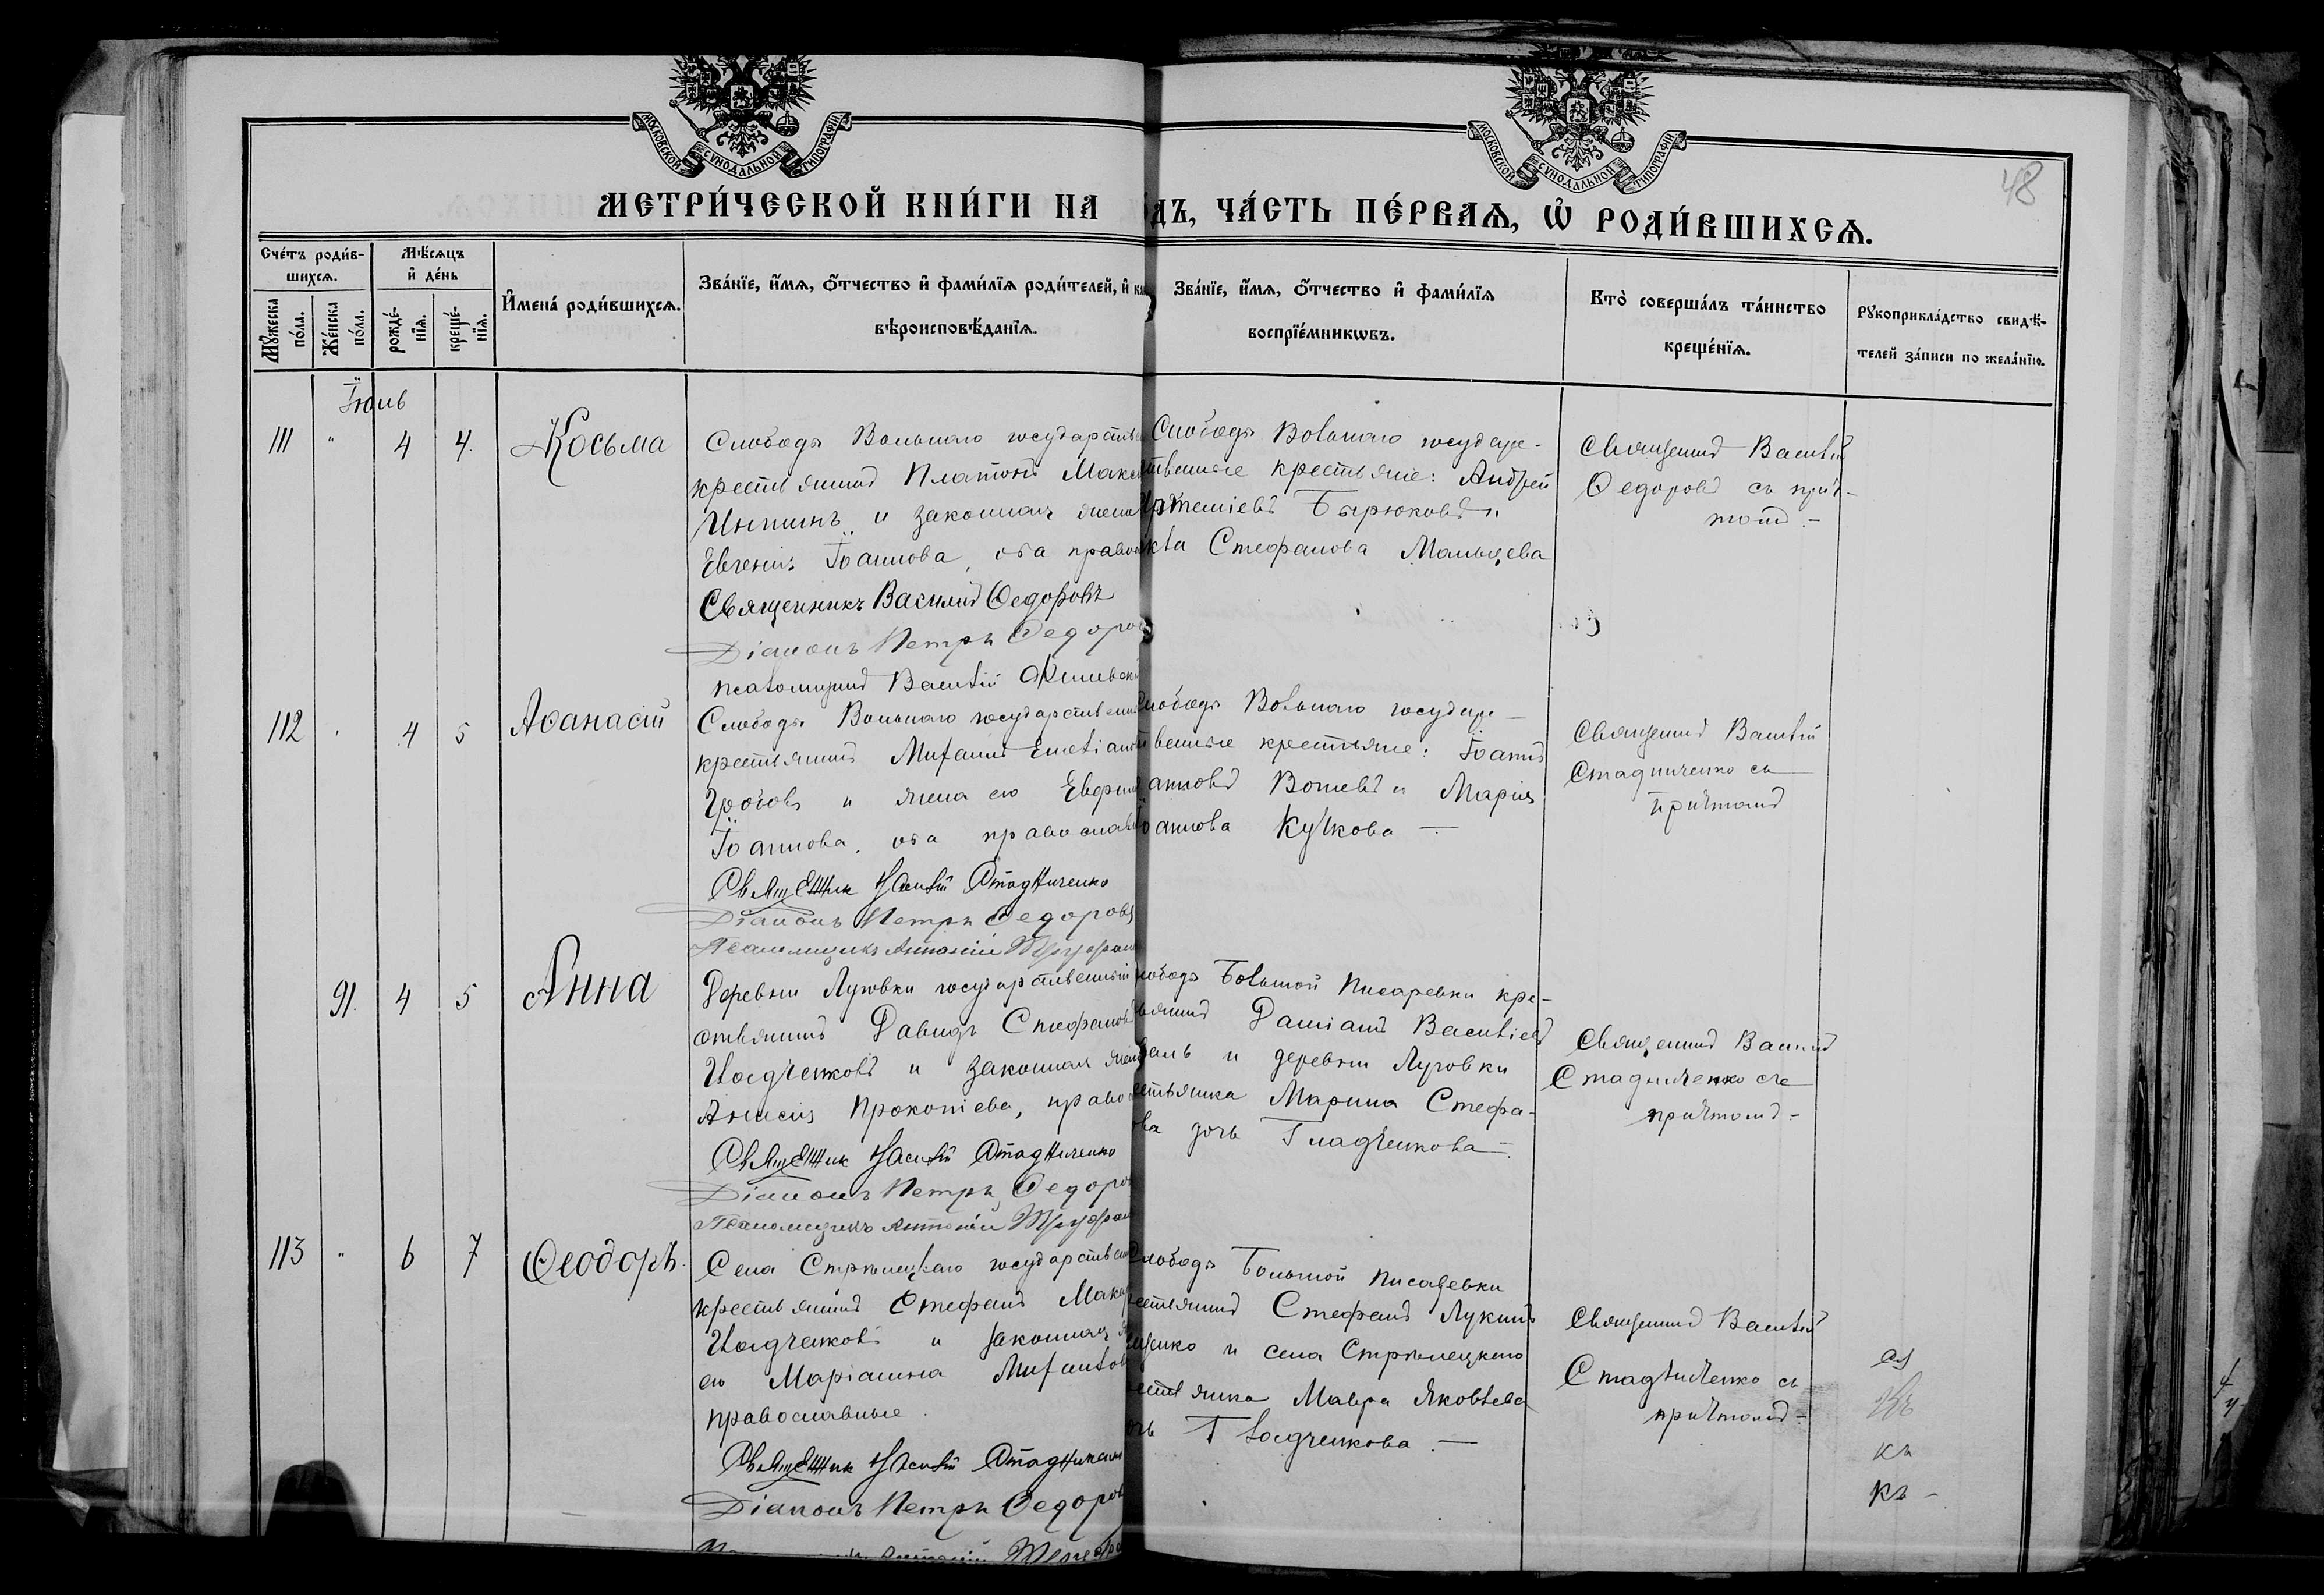 МОСКОВСКОЙ СѴНОДАЛЬНОЙ ТИПОГРАФІИ
МОСКОВСКОЙ СѴНОДАЛЬНОЙ ТИПОГРАФІИ
48
МЕТРИ́ЧЕСКОЙ КНИ́ГИ НА
ДЪ, ЧА́СТЬ ПЕ́РВАѦ, Ѡ҆ РОДИ́ВШИХСѦ.
Сче́тъ роди́в-
шихсѧ.
Мѣ́сѧцъ
и҆ де́нь
Мꙋ́жеска по́ла.
Же́нска по́ла.
рожде́-
нїѧ.
креще́-
нїѧ.
И҆мена̀ роди́вшихсѧ.
Зва́нїе, и҆́мѧ, ѻ҆́тчество и҆ фами́лїѧ роди́телей, и҆
вѣроисповѣ́данїѧ.
Зва́нїе, и҆́мѧ, ѻ҆́тчество и҆ фами́лїѧ
воспрїе́мникѡвъ.
Кто̀ соверша́лъ та́инство
креще́нїѧ.
Рꙋкоприкла́дство свидѣ́-
телей за́писи по жела́нїю.
Іюль
111 " 4 4. Косьма
Слободы Вольнаго государствен
крестьянинъ Платонъ Макс
и законная жена
Евгенія Іоаннова, оба право
Священникъ Василій Ѳедоровъ
Діаконъ Петръ Ѳедоров
Псаломщикъ Василій
Слободы Вольнаго государ-
ственные крестьяне: Андрей
Бирюковъ и
Стефанова Мальцева
Священникъ Василій
Ѳедоровъ съ прич-
томъ.-
112 4 5 Аѳанасій
Слободы Вольнаго государственн
крестьянинъ Михаилъ Емеліано
и жена его Евфим
Іоаннова, оба православн
Священник Василій Стадниченко
Діаконъ Петръ Ѳедоровъ
Псаломщикъ Антоній
Слободы Вольнаго государ-
ственные крестьяне: Іоаннъ
и Марія
Іоаннова Кучкова -
Священникъ Василій
Стадниченко съ
причтомъ
91. 4 5 Анна
Деревни Луговки государственный
крестьянинъ Давидъ Стефановъ
и законная жена
Анисія Прокопіева, право
Священник Василій Стадниченко
Діаконъ Петръ Ѳедоров
Псаломщикъ Антоній
Слободы Большой Писаревки кре-
стьянинъ Даміанъ Василіевъ
и деревни Луговки
крестьянка Марина Стефа-
нова дочь Гладченкова -.
Священникъ Василій
Стадниченко съ
причтомъ -
113 " 6 7 Ѳеодоръ.
Села Стрѣлецкаго государствен
крестьянинъ Стефанъ Мака
Гладченковъ и законная
его Маріанна Михаилов
православные.
Священник Василій Стадниченко
Діаконъ Петръ Ѳедоров
Слободы Большой Писаревки
крестьянинъ Стефанъ Лукинъ
и села Стрѣлецкаго
крестьянка Мавра Яковлева
дочь Гладченкова. -
Священникъ Василій
Стадниченко съ
причтомъ -
къ
къ -